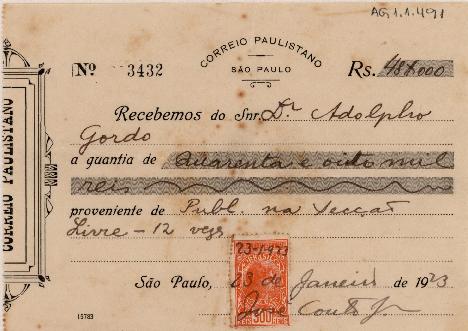 AG 1.1.491
CORREIO PAULISTANO
SÃO PAULO
Nº 3432
Rs. 48$000
Recebemos do Snr. Dr. Adolpho
Gordo
a quantia de Quarenta e oito mil
reis
proveniente de Publ. na Secção
Livre - 12 vezs
São Paulo, 23 de Janeiro de 1923
José Couto
CORREIO PAULISTANO
23-1-923
BRASIL
REIS 300 REIS
15783